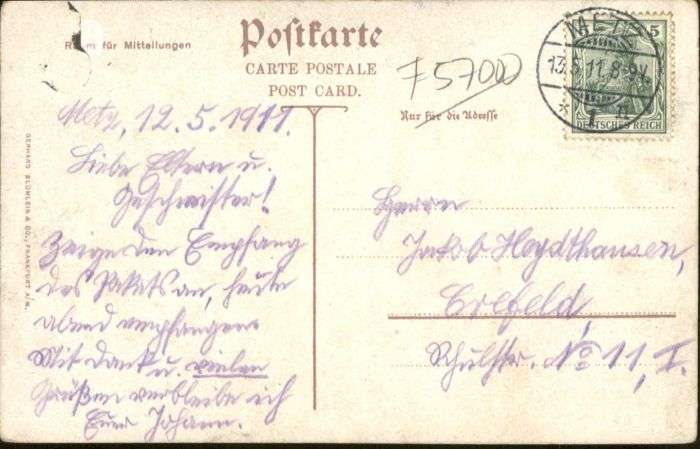 Raum für Mitteilungen
Postkarte
CARTE POSTALE
POST CARD.
Nur für die Adresse
F 57000
METZ
13.5.11.8-9V.
* 1 n
5
DEUTSCHES REICH
GERHARD BLÜMLEIN & CO., FRANKFURT A/M.
Metz, 12.5.1911.
Liebe Eltern u.
Geschwister!
Zeige den Empfang
des Pakets an, heute
abend empfangen.
Mit Dank u. vielen
Grüßen verbleibe ich
Euer Johann.
Herrn
Jakob Heydthausen,
Crefeld,
Schulstr. No 11, I.